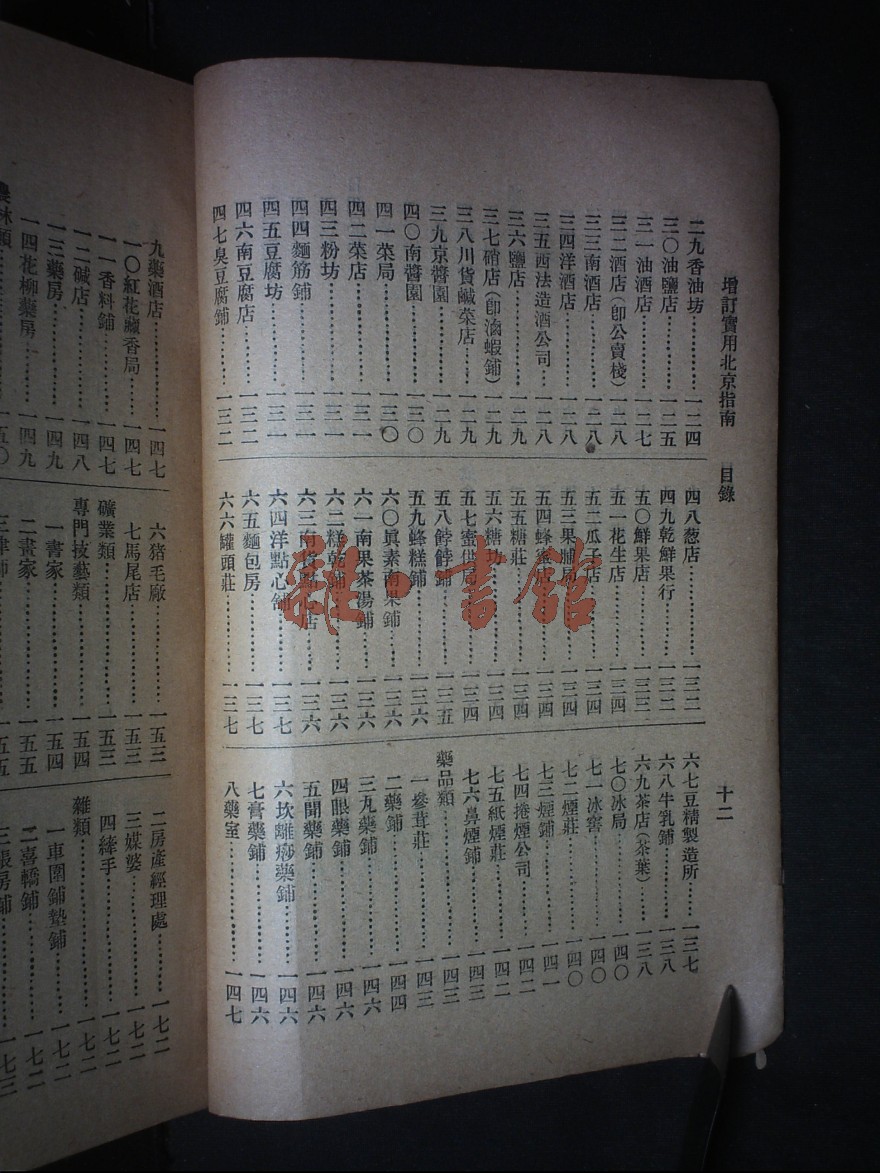 增訂實用北京指南　目錄　十二
二九香油坊…………一二四
三〇油鹽店…………一二五
三一油酒店…………一二七
三二酒店(卽公賣棧)一二八
三三南酒店…………一二八
三四洋酒店…………一二八
三五西法造酒公司…一二八
三六鹽店……………一二九
三七硝店(卽滷蝦鋪)一二九
三八川貨鹹菜店……一二九
三九京醬園…………一二九
四〇南醬園…………一三〇
四一菜局……………一三〇
四二菜店……………一三一
四三粉坊……………一三一
四四麵筋鋪…………一三一
四五豆腐坊…………一三一
四六南豆腐店………一三二
四七臭豆腐鋪………一三二
四八葱店……………一三二
四九乾鮮果行………一三二
五〇鮮果店…………一三三
五一花生店…………一三四
五二瓜子店…………一三四
五三果脯局…………一三四
五四蜂蜜店…………一三四
五五糖莊……………一三四
五六糖坊……………一三四
五七蜜供局…………一三四
五八餑餑鋪…………一三五
五九蜂糕鋪…………一三六
六〇眞素南果鋪……一三六
六一南果茶湯鋪……一三六
六二糕乾鋪…………一三六
六三南 店…………一三六
六四洋點心鋪………一三七
六五麵包房…………一三七
六六罐頭莊…………一三七
六七豆精製造所……一三七
六八牛乳鋪…………一三八
六九茶店(茶葉)……一三八
七〇冰局……………一四〇
七一冰窖……………一四〇
七二煙莊……………一四〇
七三煙鋪……………一四一
七四捲煙公司………一四二
七五紙煙莊…………一四二
七六鼻煙鋪…………一四三
藥品類
一參茸莊……………一四三
二藥鋪………………一四四
三丸藥鋪……………一四六
四眼藥鋪……………一四六
五聞藥鋪……………一四六
六坎離痧藥鋪………一四六
七膏藥鋪……………一四六
八藥室………………一四七
九藥酒店……………一四七
一〇紅花 香局……一四七
一一香料鋪…………一四七
一二碱店……………一四八
一三藥房……………一四九
一四花柳藥房………一四九
農林類………………一五〇
六猪毛廠……………一五三
七馬尾店……………一五三
礦業類………………一五三
專門技藝類…………一五四
一書家………………一五四
二畫家………………一五五
三律師………………一五五
二房產經理處………一七二
三媒婆………………一七二
四縴手………………一七二
雜類
一車圍鋪墊鋪………一七二
二喜轎鋪……………一七二
三賬房鋪……………一七三
雜·書館